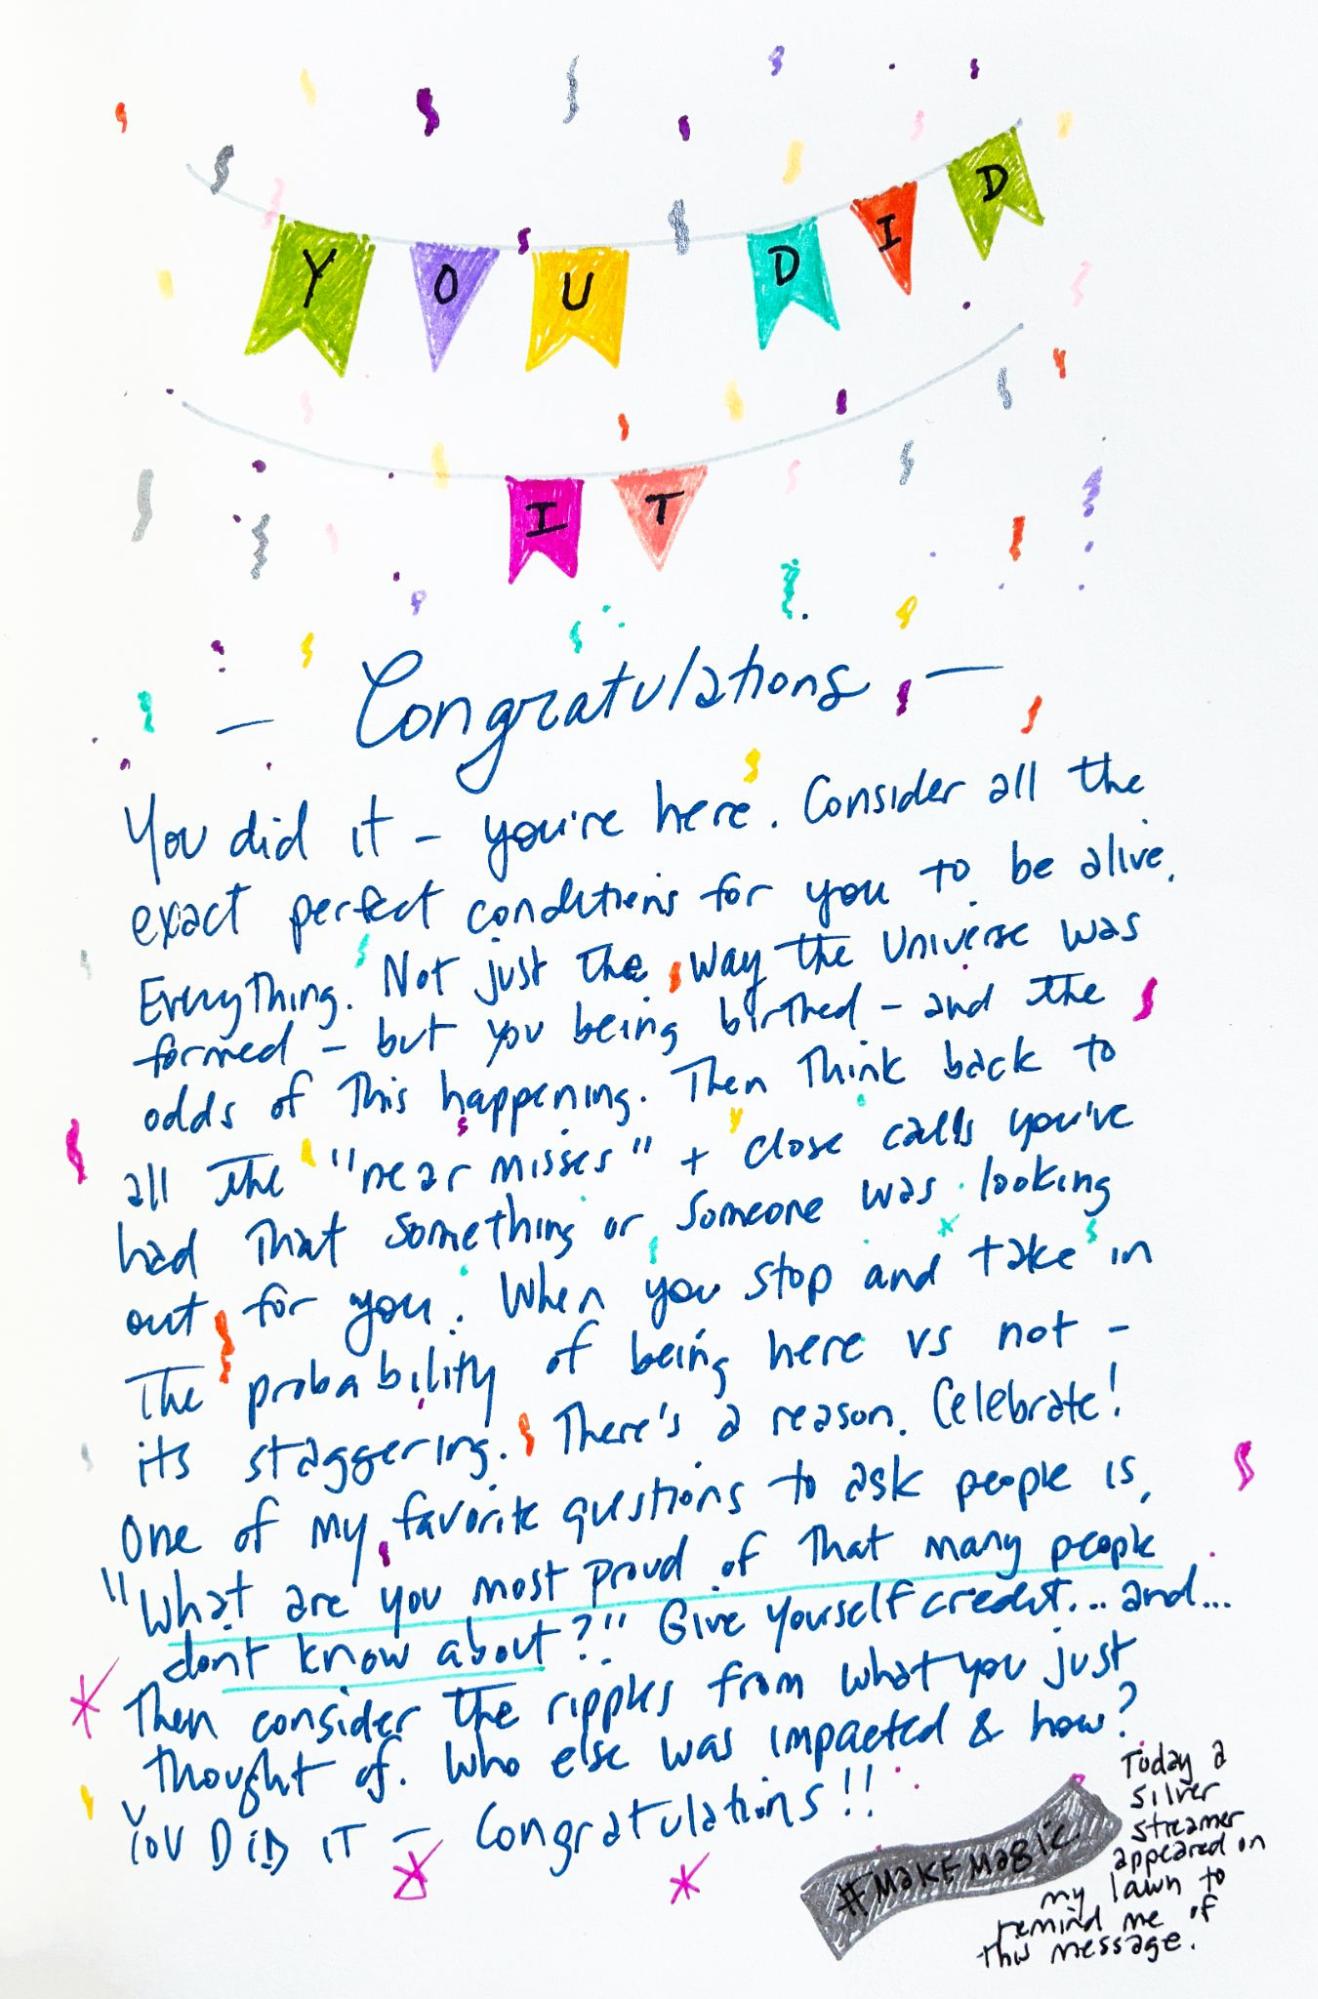 YOU DID
IT
— Congratulations —
You did it - you're here. Consider all the
exact perfect conditions for you to be alive.
Everything. Not just the way the Universe was
formed - but you being birthed - and the
odds of this happening. Then think back to
all the "near misses" + close calls you've
had that something or someone was looking
out for you. When you stop and take in
the probability of being here vs not -
its staggering. There's a reason. Celebrate!
One of my favorite questions to ask people is,
"What are you most proud of that many people
dont know about?" Give yourself credit... and...
then consider the ripples from what you just
thought of. Who else was impacted & how?
YOU DID IT - Congratulations!!
#MakeMagic
Today a
silver
streamer
appeared on
my lawn to
remind me of
this message.